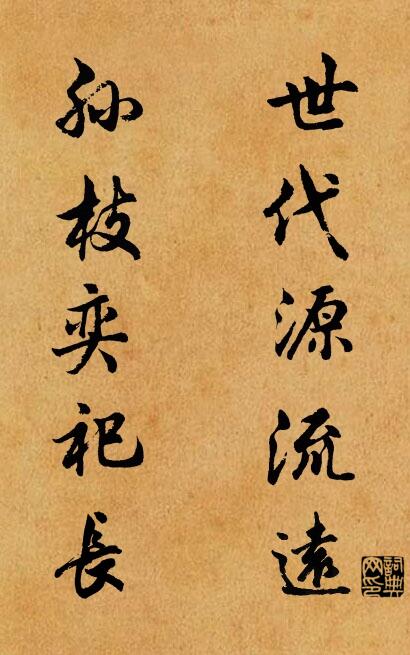 世代源流遠
孙枝奕祀長
詞典網印